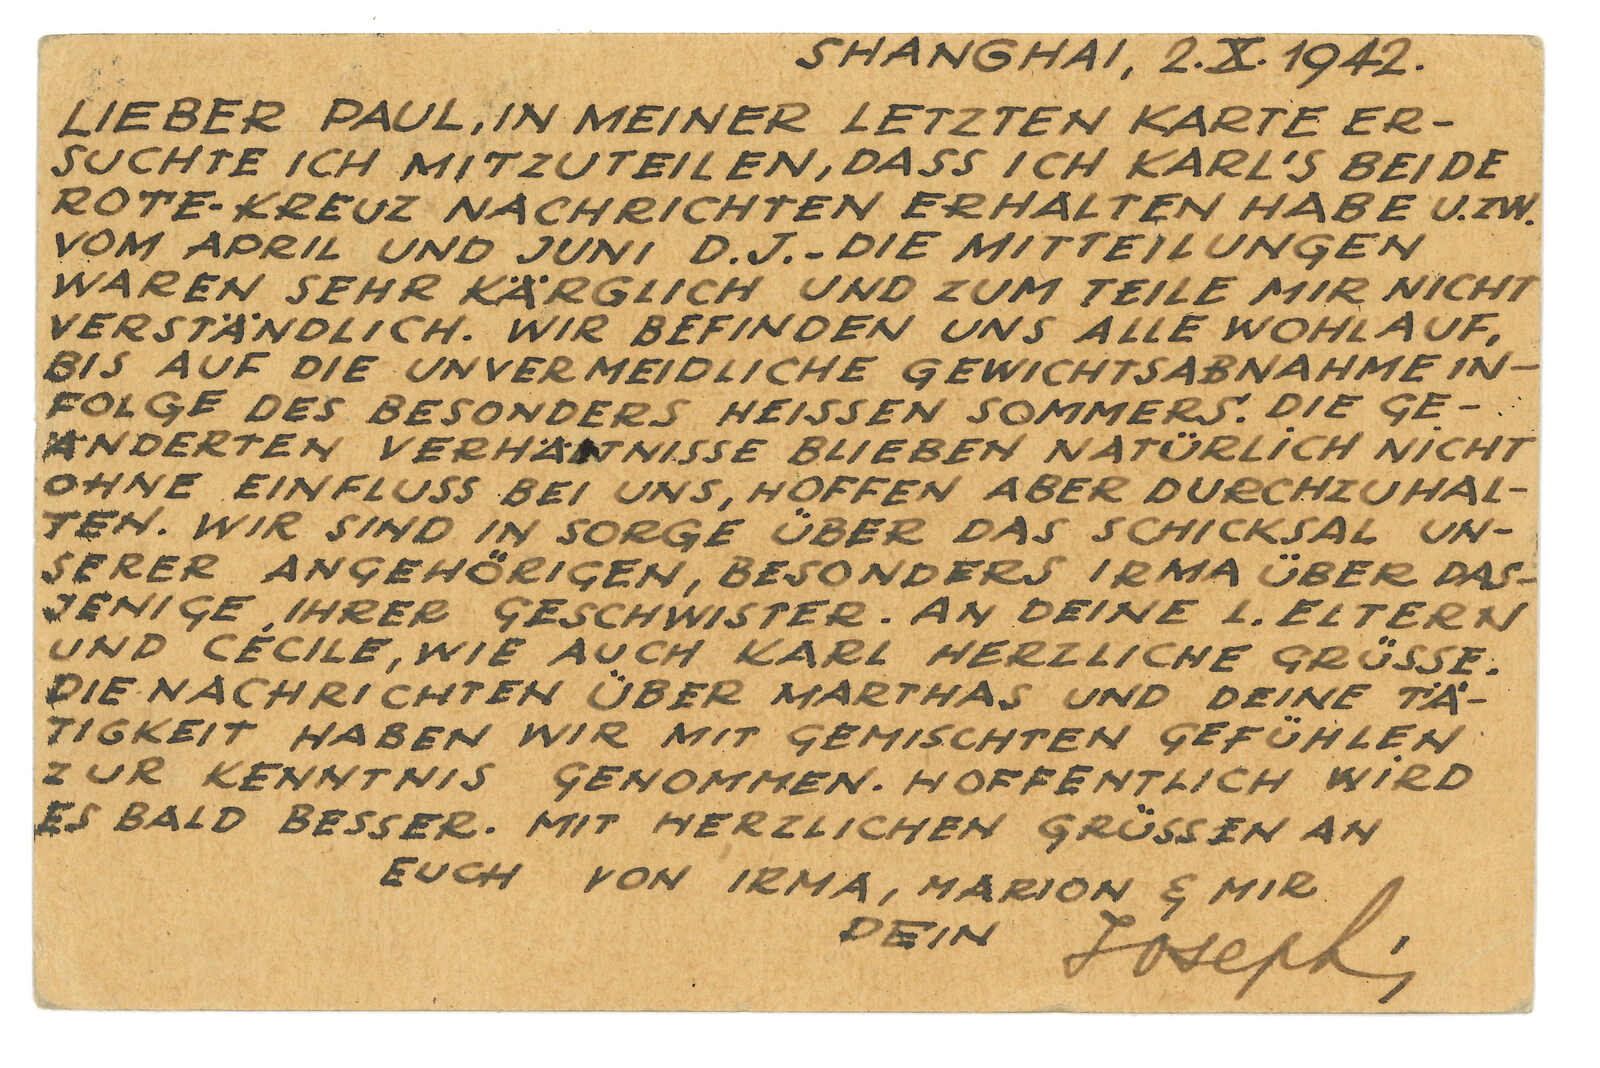 SHANGHAI, 2.X.1942.
LIEBER PAUL, IN MEINER LETZTEN KARTE ER-
SUCHTE ICH MITZUTEILEN, DASS ICH KARL'S BEIDE
ROTE-KREUZ NACHRICHTEN ERHALTEN HABE U.ZW.
VOM APRIL UND JUNI D.J.- DIE MITTEILUNGEN
WAREN SEHR KÄRGLICH UND ZUM TEILE MIR NICHT
VERSTÄNDLICH. WIR BEFINDEN UNS ALLE WOHLAUF,
BIS AUF DIE UNVERMEIDLICHE GEWICHTSABNAHME IN-
FOLGE DES BESONDERS HEISSEN SOMMERS. DIE GE-
ÄNDERTEN VERHÄLTNISSE BLIEBEN NATÜRLICH NICHT
OHNE EINFLUSS BEI UNS, HOFFEN ABER DURCHZUHAL-
TEN. WIR SIND IN SORGE ÜBER DAS SCHICKSAL UN-
SERER ANGEHÖRIGEN, BESONDERS IRMA ÜBER DAS-
JENIGE IHRER GESCHWISTER. AN DEINE L. ELTERN
UND CÉCILE, WIE AUCH KARL HERZLICHE GRÜSSE.
DIE NACHRICHTEN ÜBER MARTHAS UND DEINE TÄ-
TIGKEIT HABEN WIR MIT GEMISCHTEN GEFÜHLEN
ZUR KENNTNIS GENOMMEN. HOFFENTLICH WIRD
ES BALD BESSER. MIT HERZLICHEN GRÜSSEN AN
EUCH VON IRMA, MARION & MIR
DEIN Joseph,